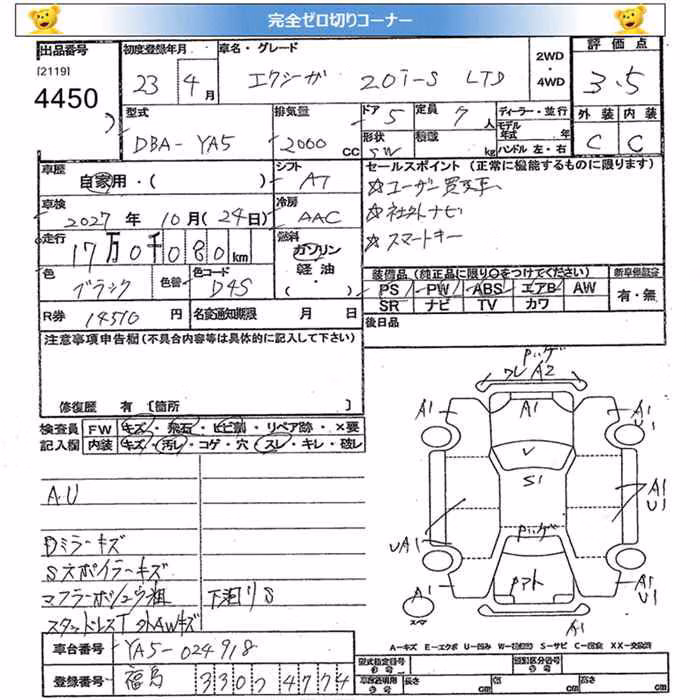 完全ゼロ切りコーナー
出品番号
[2119]
4450
初度登録年月
23 4月
車名・グレード
エクシーガ 2.0i-S LTD
2WD
・
4WD
評価点
3.5
外装 内装
C C
型式
DBA- YA5
排気量
2000 CC
ドア 5
形状 SW
定員 7 人
積載 kg
ディーラー・並行
モデル年式 年
ハンドル 左・右
車歴
自家用・( )
シフト
AT
車検
2027年 10月(24日)
冷房
AAC
走行
17万0千080km
燃料
ガソリン
軽油
( ・ )
色
ブラック
色替
色コード
D4S
R券 14510 円
名変通知期限 月 日
セールスポイント (正常に機能するものに限ります)
☆ユーザー買取車
☆社外ナビ
☆スマートキー
装備品 (純正品に限り○をつけてください)
新車保証書
PS PW ABS エアB AW
SR ナビ TV カワ
有・無
後日品
注意事項申告欄 (不具合内容等は具体的に記入して下さい)
修復歴 有 [箇所 ]
検査員記入欄
FW キズ・飛石・ヒビ割・リペア跡・×要
内装 キズ・汚レ・コゲ・穴・スレ・キレ・破レ
AU
Dミラーキズ
Sスポイラーキズ
下廻りS
車台番号 YA5-024918
登録番号 福島 330 つ 4774
A2
A1
A1
A1
V
S1
A1
U1
UA1
A1
U1
A1
A1
U1
A1
スペア
A-キズ E-エクボ U-凹み S-サビ C-腐食 XX-交換済
型式指定番号
類別区分番号
長さ cm
幅 cm
高さ cm